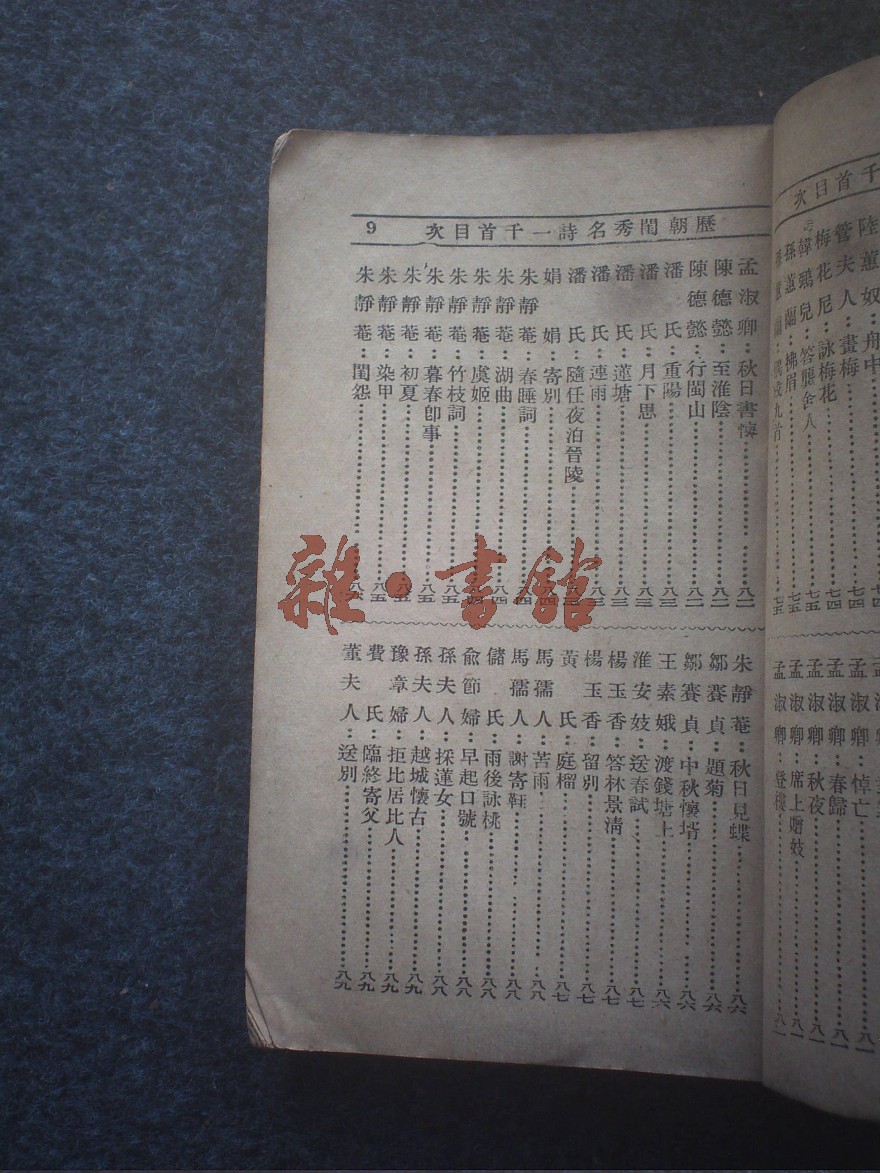 歷朝閨秀名詩一千首目次 9
孟淑卿：秋日書懷 八二
陳德懿：至淮陰 八二
陳德懿：行閩山 八二
潘氏：重陽 八三
潘氏：月下思 八三
潘氏：蓮塘 八三
潘氏：連雨
潘氏：隨任夜泊晉陵
娟娟：寄別 八四
朱靜菴：春睡詞 八四
朱靜菴：湖曲 八四
朱靜菴：虞姬
朱靜菴：竹枝詞 八五
朱靜菴：暮春卽事 八五
朱靜菴：初夏
朱靜菴：染甲 八五
朱靜菴：閨怨
朱靜菴：秋日見蝶 八六
鄒賽貞：題菊 八六
鄒賽貞：中秋懷壻 八六
王素娥：渡錢塘上 八六
淮安妓：送春試 八七
楊玉香：答林景淸 八七
楊玉香：留別 八七
黃氏：庭榴 八七
馬孺人：苦雨 八八
馬孺人：謝寄鞋 八八
儲氏：雨後詠桃 八八
俞節婦：早起口號 八八
孫夫人：採蓮女 八八
孫夫人：越城懷古 八九
豫章婦：拒比居比人 八九
費氏：臨終寄父 八九
董夫人：送別 八九
首目次
陸蕙奴：舟中 七四
管夫人：畫梅 七四
梅花尼：詠梅花 七四
韓鵑兒：答聽舍人 七五
孫蕙蘭：拂眉 七五
九首 七五
孟淑卿：悼亡 八一
孟淑卿：春歸 八一
孟淑卿：秋夜 八一
孟淑卿：席上贈妓 八一
孟淑卿：登樓 八一
雜·書館